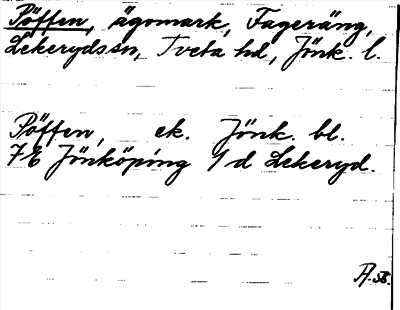 Pöffen, ägomark, Fageräng,
Lekerydssn, Tveta hd, Jönk. l.
Pöffen, ek. Jönk. bl.
7E Jönköping 1d Lekeryd.
A.st.